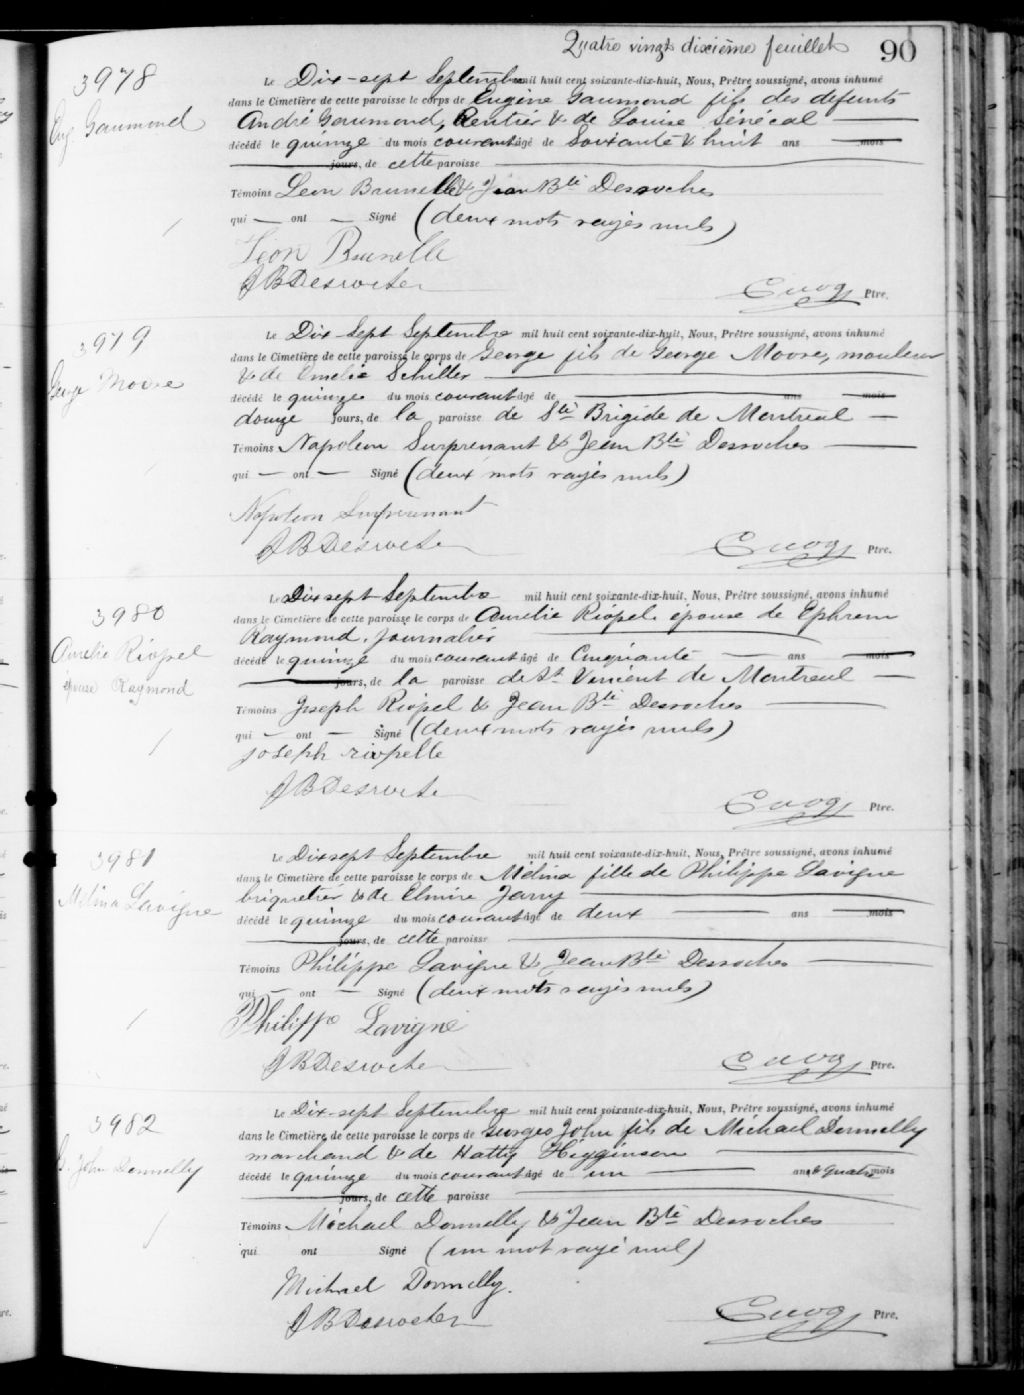 Quatre vingt dixième feuillet 90
3978
Eug. Gaumond
Le Dix-sept Septembre mil huit cent soixante-dix-huit, Nous, Prêtre soussigné, avons inhumé
dans le Cimetière de cette paroisse le corps de Eugène Gaumond fils des defunts
André Gaumond, Rentier & de Louise Sénécal
décédé le quinze du mois courant âgé de Soixante & huit ans mois
jours, de cette paroisse
Témoins Leon Brunelle & Jean Bte Desroches
qui — ont — Signé (deux mots rayés nuls)
Léon Brunelle
J B Desroches
Cuoq Ptre.
3979
George Moore
Le Dix-Sept Septembre mil huit cent soixante-dix-huit, Nous, Prêtre soussigné, avons inhumé
dans le Cimetière de cette paroisse le corps de George fils de George Moore, mouleur
& de Emelie Schiller
décédé le quinze du mois courant âgé de ans mois
douze jours, de la paroisse de Ste Brigide de Montreal
Témoins Napoleon Surprenant & Jean Bte Desroches
qui — ont — Signé (deux mots rayés nuls)
Napoleon Surprenant
J B Desroches
Cuoq Ptre.
3980
Aurelie Riopel
épouse Raymond
Le Dix sept Septembre mil huit cent soixante-dix-huit, Nous, Prêtre soussigné, avons inhumé
dans le Cimetière de cette paroisse le corps de Aurelie Riopel, épouse de Ephrem
Raymond, journalier
décédé le quinze du mois courant âgé de Cinquante — ans mois
jours, de la paroisse de St Vincent de Montreal
Témoins Joseph Riopel & Jean Bte Desroches
qui — ont — Signé (deux mots rayés nuls)
joseph riopelle
J B Desroches
Cuoq Ptre.
3981
Mélina Lavigne
Le Dix sept Septembre mil huit cent soixante-dix-huit, Nous, Prêtre soussigné, avons inhumé
dans le Cimetière de cette paroisse le corps de Mélina fille de Philippe Lavigne
briquetier & de Elmire Jarry
décédé le quinze du mois courant âgé de deux — ans mois
jours, de cette paroisse
Témoins Philippe Lavigne & Jean Bte Desroches
qui — ont — Signé (deux mots rayés nuls)
Philippe Lavigne
J B Desroches
Cuoq Ptre.
3982
G. John Donnelly
Le Dix-sept Septembre mil huit cent soixante-dix-huit, Nous, Prêtre soussigné, avons inhumé
dans le Cimetière de cette paroisse le corps de Georges John fils de Michael Donnelly
marchand & de Hatty Higginson
décédé le quinze du mois courant âgé de un — an & quatre mois
jours, de cette paroisse
Témoins Michael Donnelly & Jean Bte Desroches
qui ont Signé (un mot rayé nul)
Michael Donnelly.
J B Desroches
Cuoq Ptre.